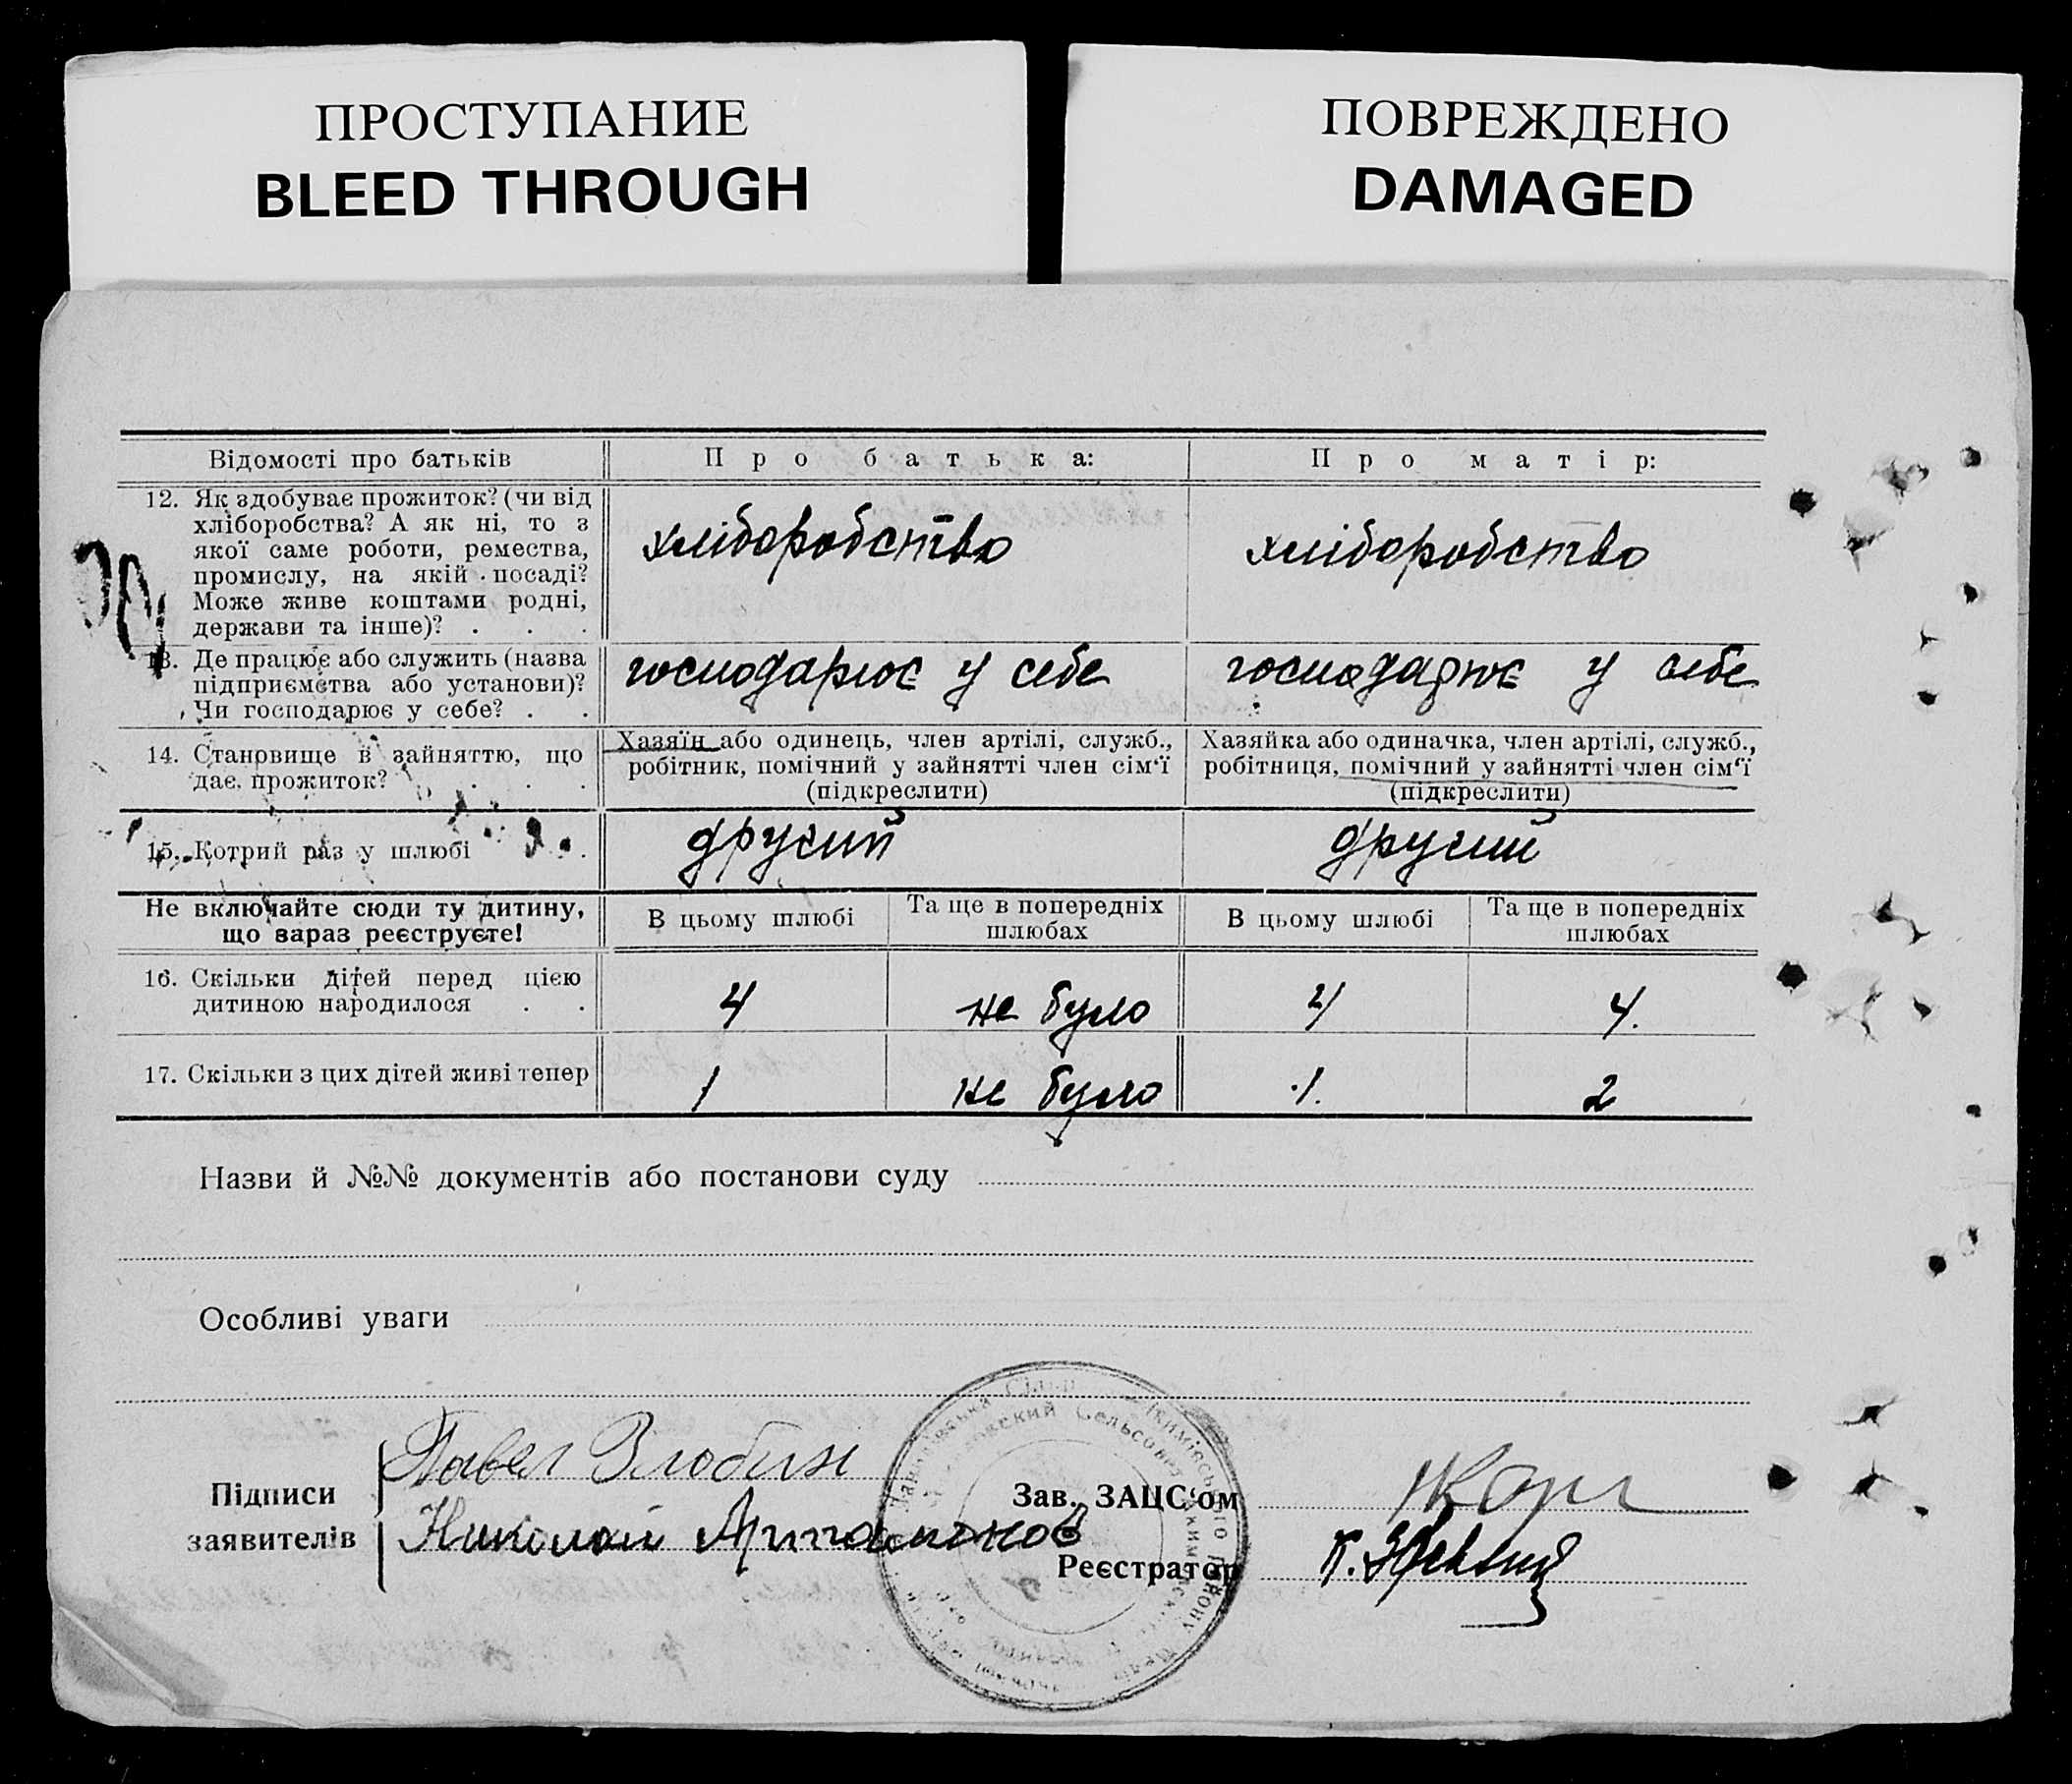 ПРОСТУПАНИЕ
BLEED THROUGH
ПОВРЕЖДЕНО
DAMAGED
Відомості про батьків
Про батька:
Про матір:
12. Як здобуває прожиток? (чи від
хліборобства? А як ні, то з
якої саме роботи, ремества,
промислу, на якій посаді?
Може живе коштами родні,
держави та інше)? . . .
хліборобство
хліборобство
13. Де працює або служить (назва
підприємства або установи)?
Чи господарює у себе? . .
господарює у себе
господарює у себе
14. Становище в зайняттю, що
дає прожиток? . . .
Хазяїн або одинець, член артілі, служб.,
робітник, помічний у зайнятті член сім‘ї
(підкреслити)
Хазяйка або одиначка, член артілі, служб.,
робітниця, помічний у зайнятті член сім‘ї
(підкреслити)
15. Котрий раз у шлюбі . .
другий
другий
Не включайте сюди ту дитину,
що зараз реєструєте!
В цьому шлюбі
Та ще в попередніх
шлюбах
В цьому шлюбі
Та ще в попередніх
шлюбах
16. Скільки дітей перед цією
дитиною народилося . .
4
не було
4
4.
17. Скільки з цих дітей живі тепер
1
не було
1.
2
Назви й №№ документів або постанови суду
Особливі уваги
Підписи
заявителів
Павел Злобин
Николай Артамонов
Зав. ЗАЦС‘ом
Реєстратор